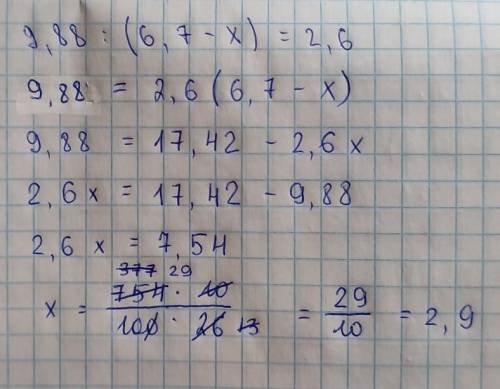 9,88 : (6,7 - x) = 2,6
9,88 = 2,6 (6,7 - x)
9,88 = 17,42 - 2,6 x
2,6 x = 17,42 - 9,88
2,6 x = 7,54
377 29
x = 754 · 10 / 100 · 26 13 = 29 / 10 = 2,9